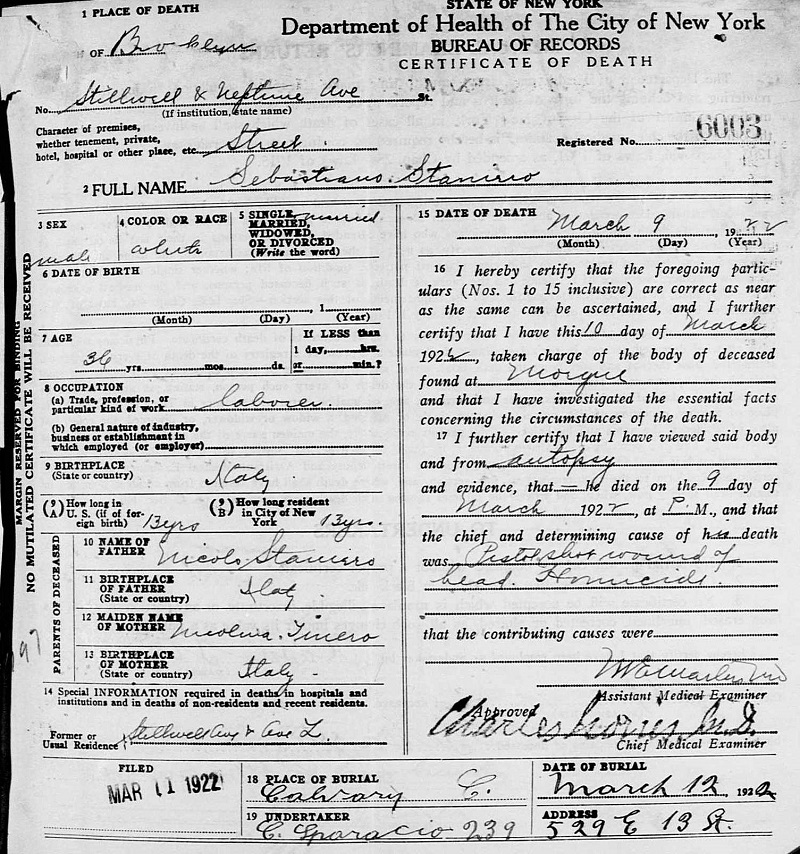 STATE OF NEW YORK
Department of Health of The City of New York
BUREAU OF RECORDS
CERTIFICATE OF DEATH
1 PLACE OF DEATH
OF Brooklyn
No. Stillwell & Neptune Ave St.
(If institution, state name)
Character of premises,
whether tenement, private,
hotel, hospital or other place, etc. Street.
Registered No. 6003
2 FULL NAME Sebastiano Staniero
MARGIN RESERVED FOR BINDING
NO MUTILATED CERTIFICATE WILL BE RECEIVED
3 SEX
male
4 COLOR OR RACE
white
5 SINGLE, married
MARRIED,
WIDOWED,
OR DIVORCED
(Write the word)
6 DATE OF BIRTH
, 1
(Month) (Day) (Year)
7 AGE
36 yrs. mos. ds.
If LESS than
1 day, hrs.
or min.?
8 OCCUPATION
(a) Trade, profession, or
particular kind of work laborer.
(b) General nature of industry,
business or establishment in
which employed (or employer)
9 BIRTHPLACE
(State or country) Italy
(9A) How long in
U. S. (if of foreign birth) 13yrs
(9B) How long resident
in City of New
York 13yrs.
PARENTS OF DECEASED
10 NAME OF
FATHER Nicolo Staniero
11 BIRTHPLACE
OF FATHER
(State or country) Italy
12 MAIDEN NAME
OF MOTHER
13 BIRTHPLACE
OF MOTHER
(State or country) Italy
97
14 Special INFORMATION required in deaths in hospitals and
institutions and in deaths of non-residents and recent residents.
Former or
Usual Residence Stillwell Ave & Ave
15 DATE OF DEATH March 9 1922
(Month) (Day) (Year)
16 I hereby certify that the foregoing partic-
ulars (Nos. 1 to 15 inclusive) are correct as near
as the same can be ascertained, and I further
certify that I have this 10 day of March
1922, taken charge of the body of deceased
found at Morgue
and that I have investigated the essential facts
concerning the circumstances of the death.
17 I further certify that I have viewed said body
and from autopsy
and evidence, that he died on the 9 day of
March 1922, at P. M., and that
the chief and determining cause of his death
was Pistol shot wound of
head. Homicide.
that the contributing causes were
Assistant Medical Examiner
Approved
Charles Norris M.D.
Chief Medical Examiner
FILED
MAR 11 1922
18 PLACE OF BURIAL
Calvary C.
DATE OF BURIAL
March 12 1922
19 UNDERTAKER
C. Sparacio 239
ADDRESS
529 E 13 St.